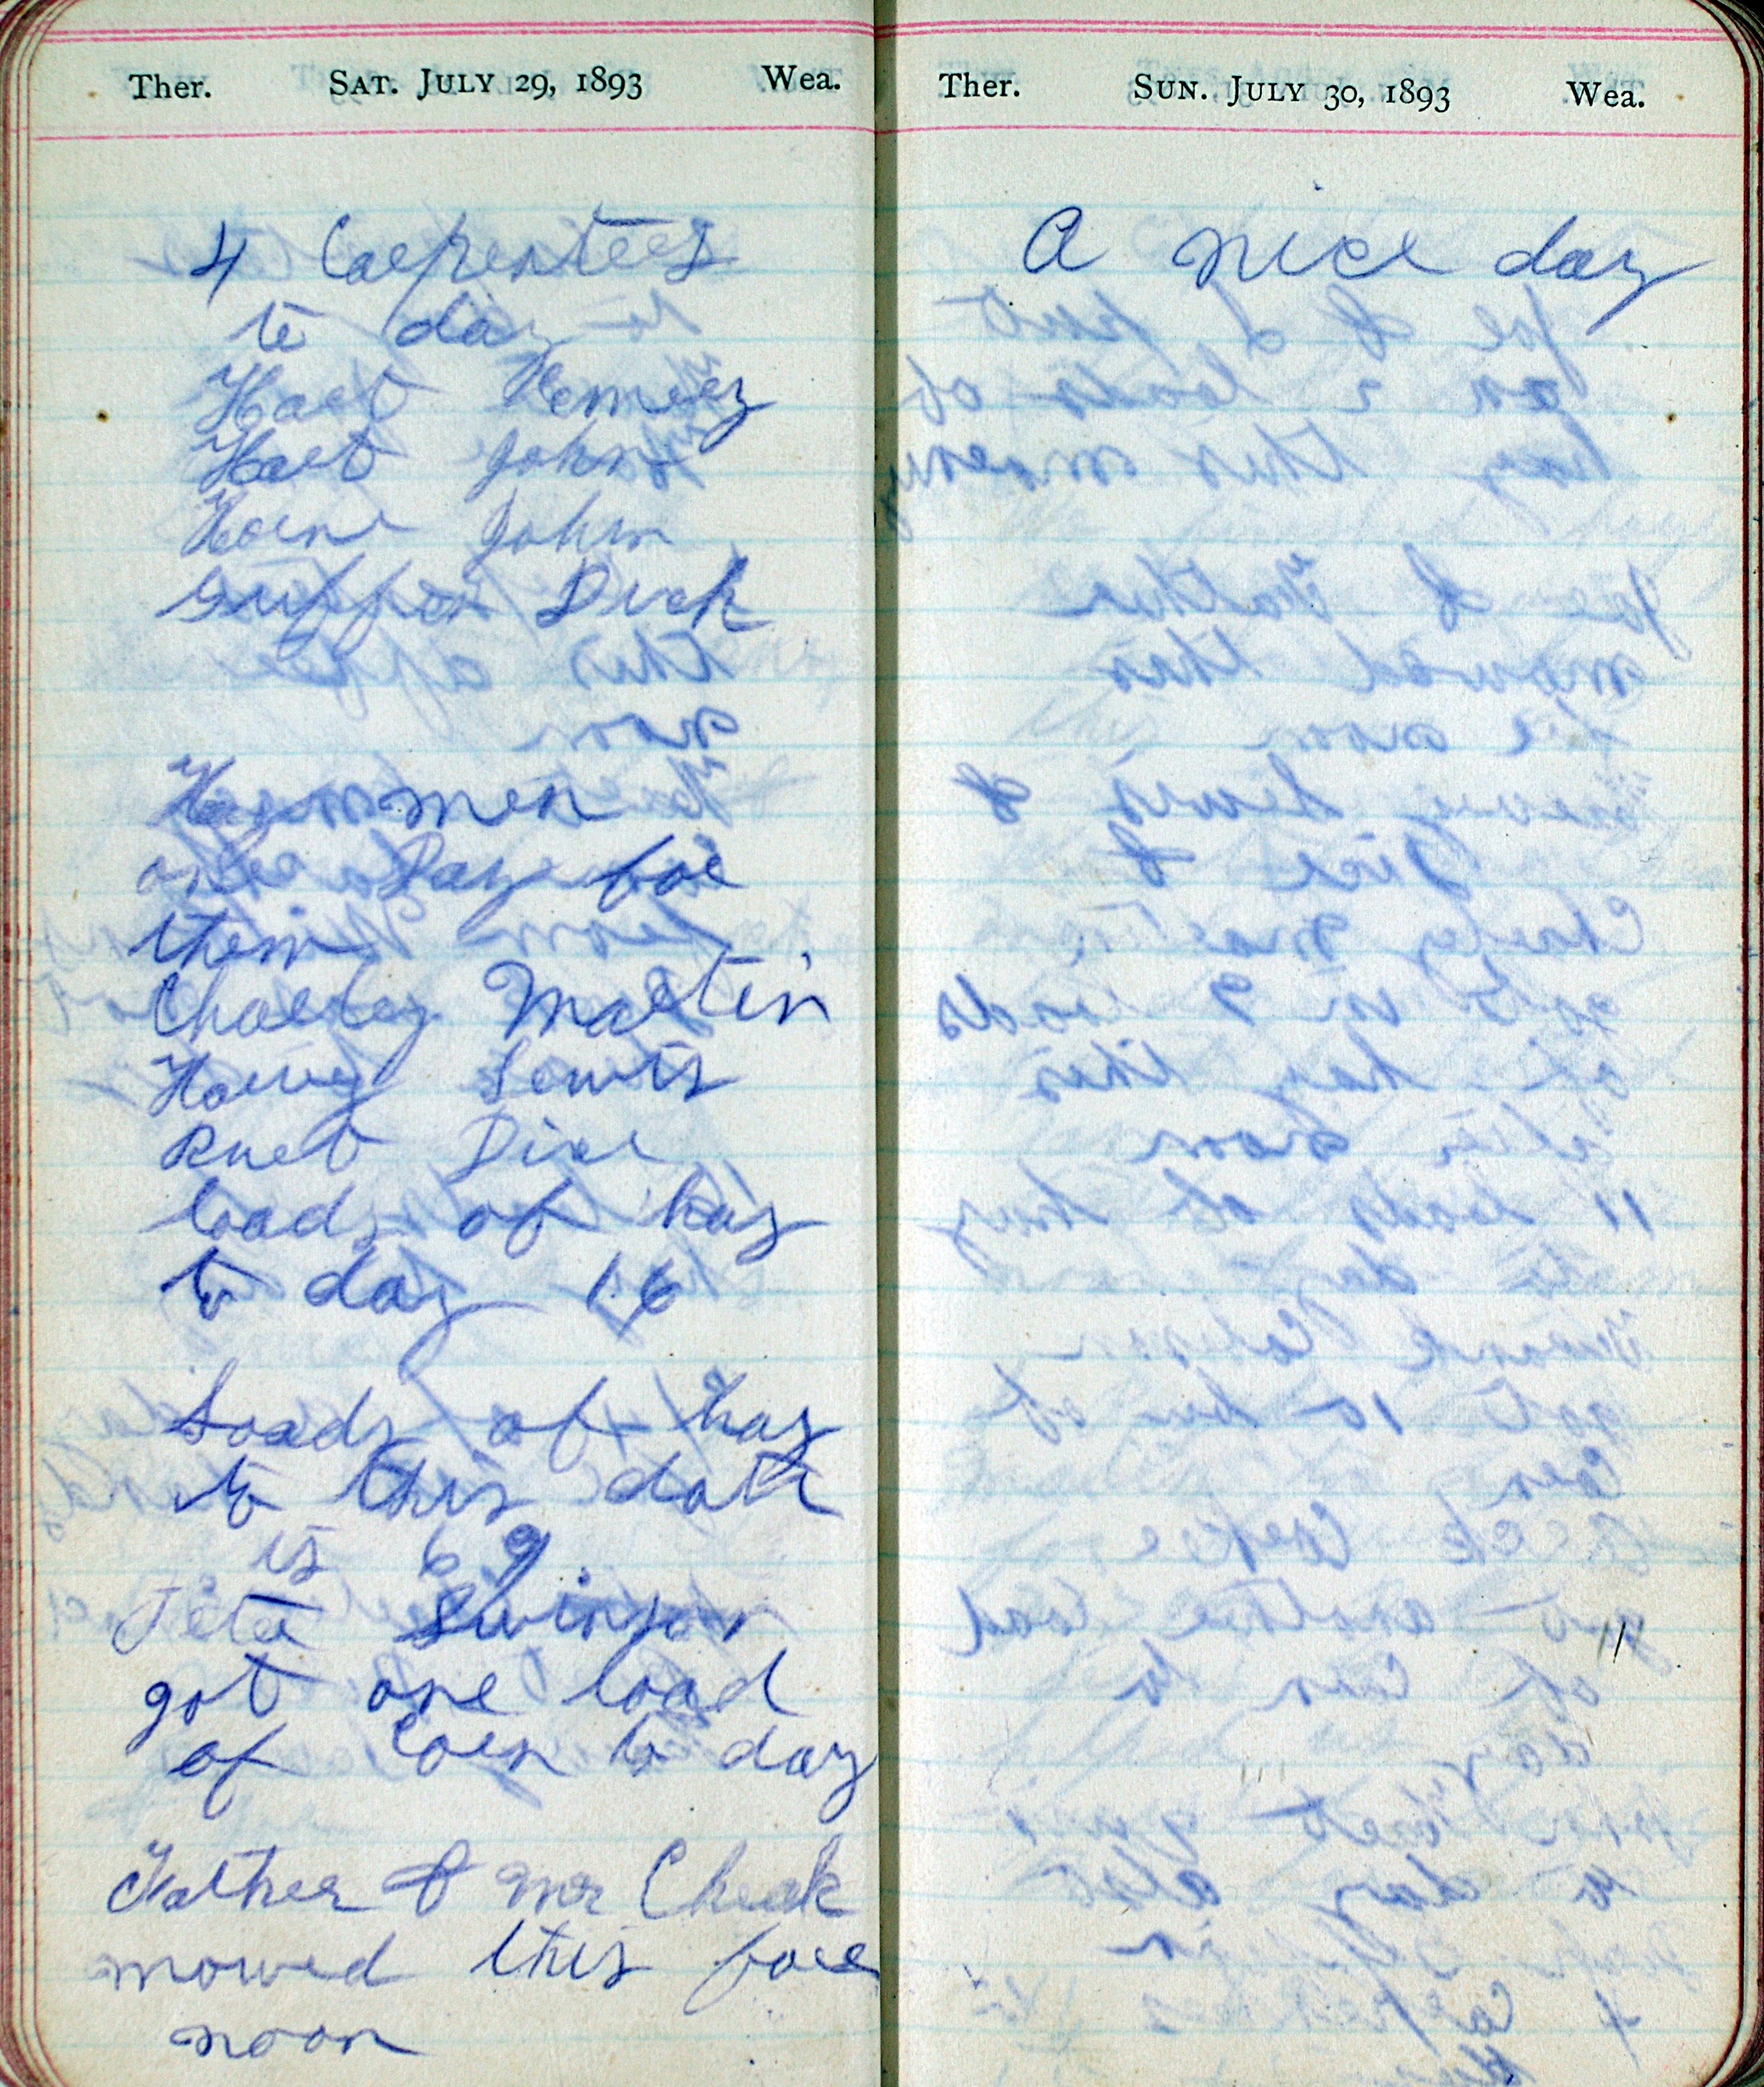 Ther. SAT. JULY 29, 1893 Wea.
4 Carpenters
to day
Hart Hemery
Hart John
Horne John
Dick
Hay men
one Day for
them
Charley Martin
Harvey Lewis
Burt Dice
loads of hay
to day 16
Loads of hay
to this date
is 69
Peter Swinson
got one load
of Corn to day
Father & Mr Cheak
mowed this fore
noon
Ther. SUN. JULY 30, 1893 Wea.
A nice day